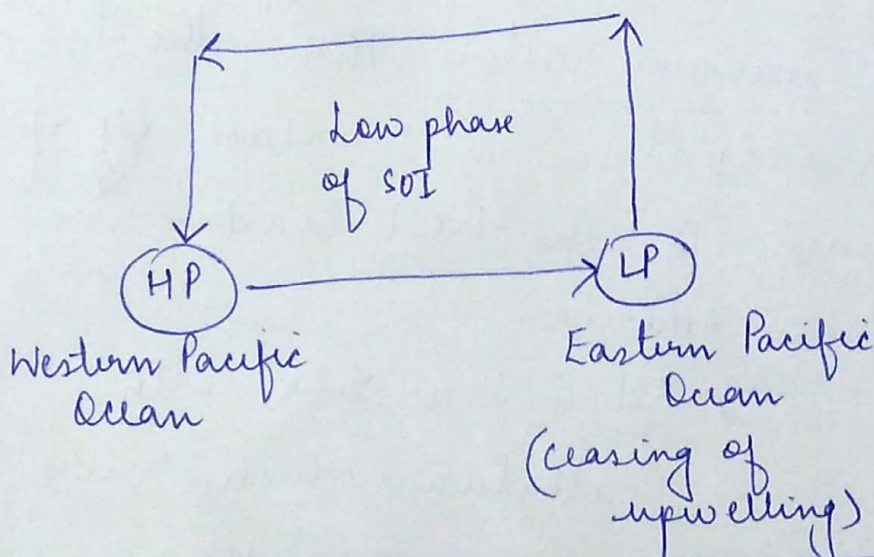 Low phase
of SOI
HP
LP
Western Pacific
Ocean
Eastern Pacific
Ocean
(ceasing of
upwelling)